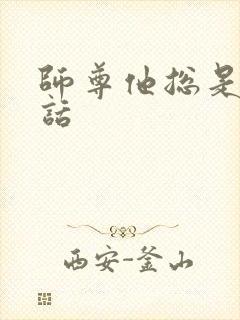 師尊他總是
話
西安-釜山